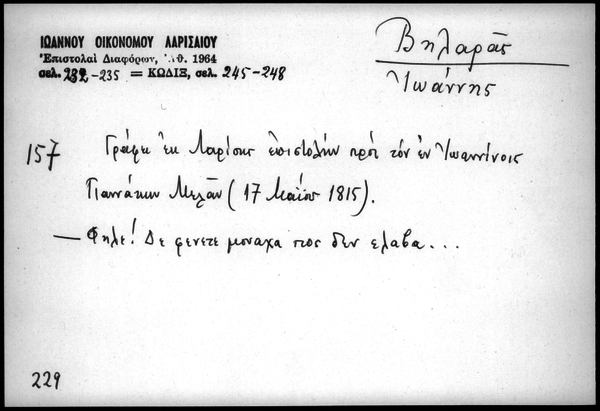 ΙΩΑΝΝΟΥ ΟΙΚΟΝΟΜΟΥ ΛΑΡΙΣΑΙΟΥ
Ἐπιστολαὶ Διαφόρων, Ἀθ. 1964
σελ. 232-235 = ΚΩΔΙΞ, σελ. 245-248
Βηλαρᾶς
Ἰωάννης
157 Γράφει ἐκ Λαρίσης ἐπιστολὴν πρὸς τὸν ἐν Ἰωαννίνοις
Γιαννάκην Μελᾶν (17 Μαΐου 1815).
— Φηλε! Δε φενετε μοναχα πος δεν ελαβα...
229